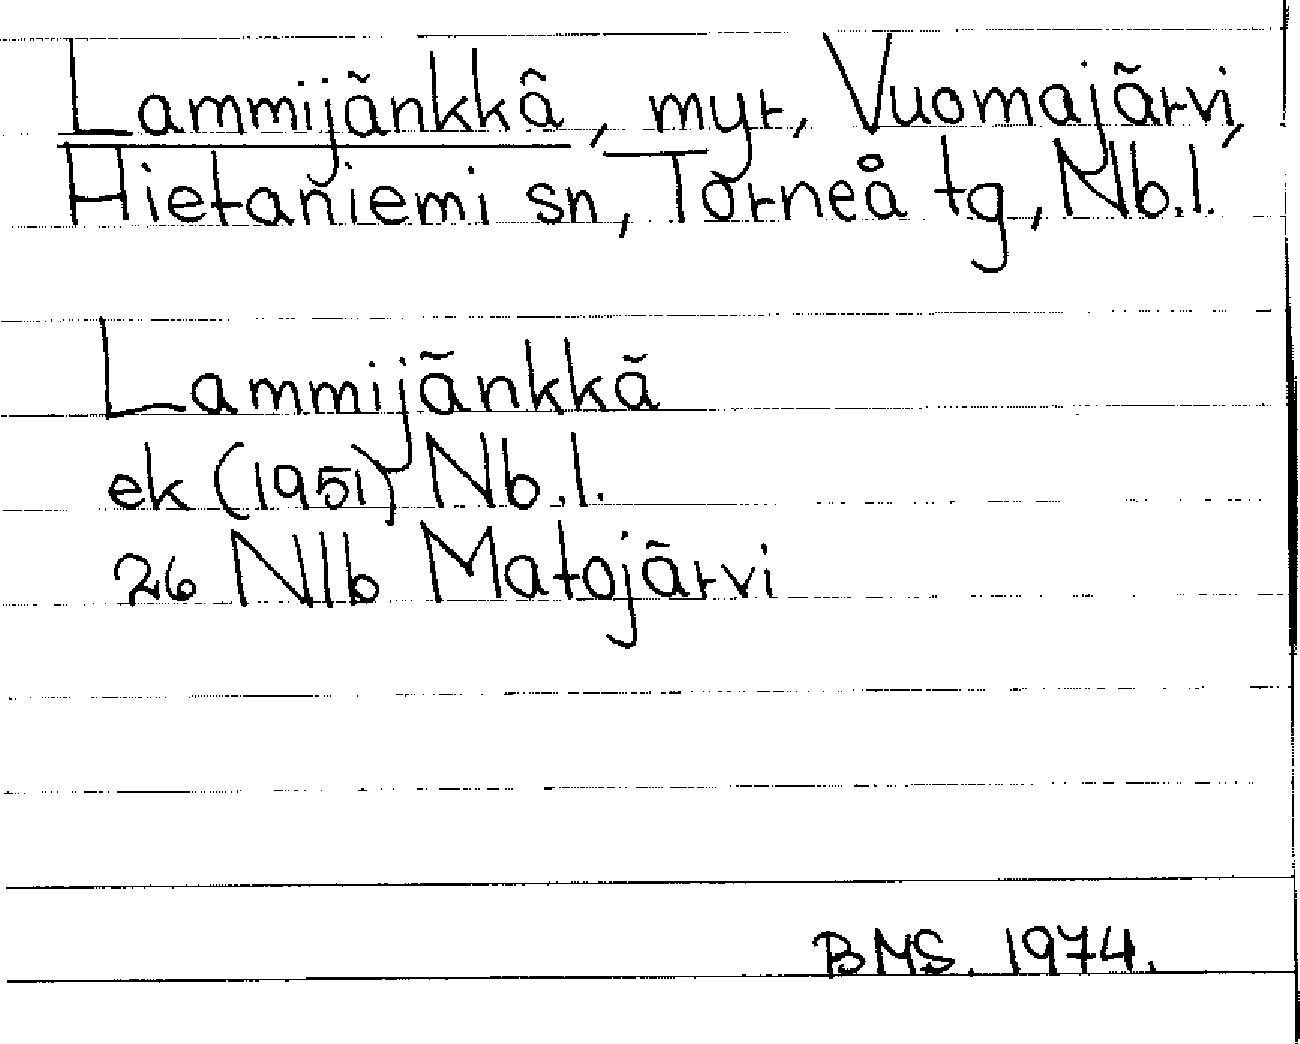 Lammijänkkä, myr, Vuomajärvi,
Hietaniemi sn, Torneå tg, Nb.l.
Lammijänkkä
ek (1951) Nb.l.
26 Nlb Matojärvi
BMS. 1974.